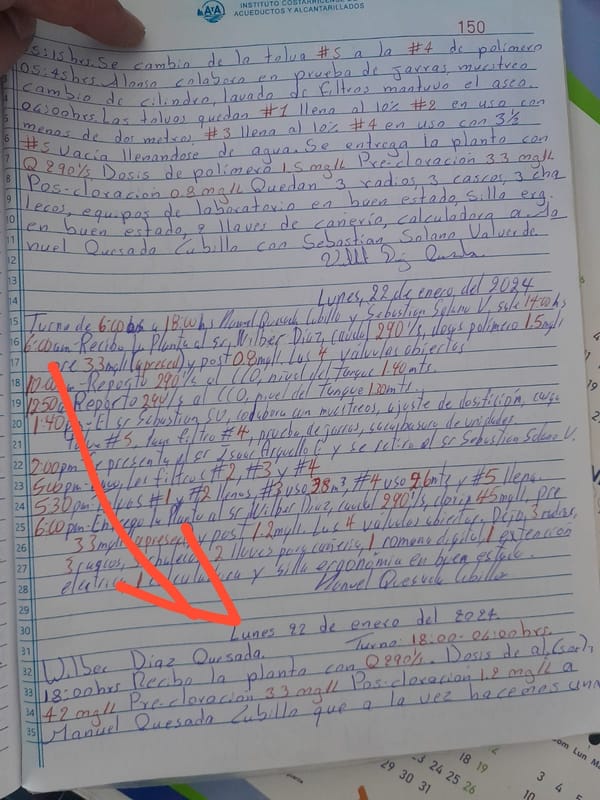 INSTITUTO COSTARRICENSE DE
ACUEDUCTOS Y ALCANTARILLADOS
AyA
150
5:15hrs. Se cambio de la tolva #5 a la #4 de polimero
05:45hrs. Alonso colabora en prueba de jarras, muestreo
cambio de cilindro, lavado de filtros mantuvo el aseo.
06:00hrs. Las tolvas quedan #1 llena al 10% #2 en uso con
menos de dos metros #3 llena al 10% #4 en uso con 3½
#5 Vacia llenandose de agua. Se entrega la planta con
Q 290l/s Dosis de polimero 1.5 mg/L Pre-cloración 3.3 mg/L
Pos-cloración 0.8 mg/L Quedan 3 radios, 3 cascos, 3 cha
lecos, equipos de laboratorio en buen estado, silla erg.
en buen estado, 2 llaves de cañeria, calculadora a Ma
nuel Quesada Cubillo con Sebastian Solano Valverde
Lunes, 22 de enero, del 2024
Turno de 6:00 a 18:00hs Manuel Quesada Cubillo y Sebastian Solano V, sale 14:00hs
6:00am - Recibo la Planta al sr, Wilber Diaz, caudal 290l/s, dosis polimero 1.5mg/l
pre 3.3mg/l (apresed) y post 0.8mg/l. Las 4 valvulas abiertas
Reporto 290l/s al CCO, nivel del tanque 1.40mts.
Reporto 290l/s al CCO, nivel del Tanque 1.30mts.
1:40pm - El sr Sebastian SV, colabora con muestreos, ajuste de dosifición, carga
#5, lavo filtro #4, prueba de jarros, de unidades
2:00pm se presenta el sr Isaac Arguello G y se retira el sr Sebastian Solano V.
5:00pm - Lavo, los filtros #2, #3 y #4
5:30pm #1 y #2 llenos, #3 uso 38m³, #4 uso 96mts y #5 llena.
6:00pm - Entrego la Planta al sr Wilber Diaz, caudal 290l/s, 45mg/l, pre
3.3mg/l apresed y post 1.2mg/l. Las 4 valvulas abiertas, Dejo, 3 radios,
3 cascos, 3 chalecos, 2 llaves para cañeria, 1 romana digital, 1 extención
electrica, 1 calculadora y silla ergonomia en buen estado.
Manuel Quesada Cubillo
Lunes 22 de enero del 2024.
Wilber Diaz Quesada. Turno: 18:00-06:00hrs.
18:00hrs Recibo la planta con Q290l/s. Dosis de al.
42 mg/L Pre-cloracion 3.3 mg/L Pos-cloración 1.2 mg/L a
Manuel Quesada Cubillo que a la vez hacemos una